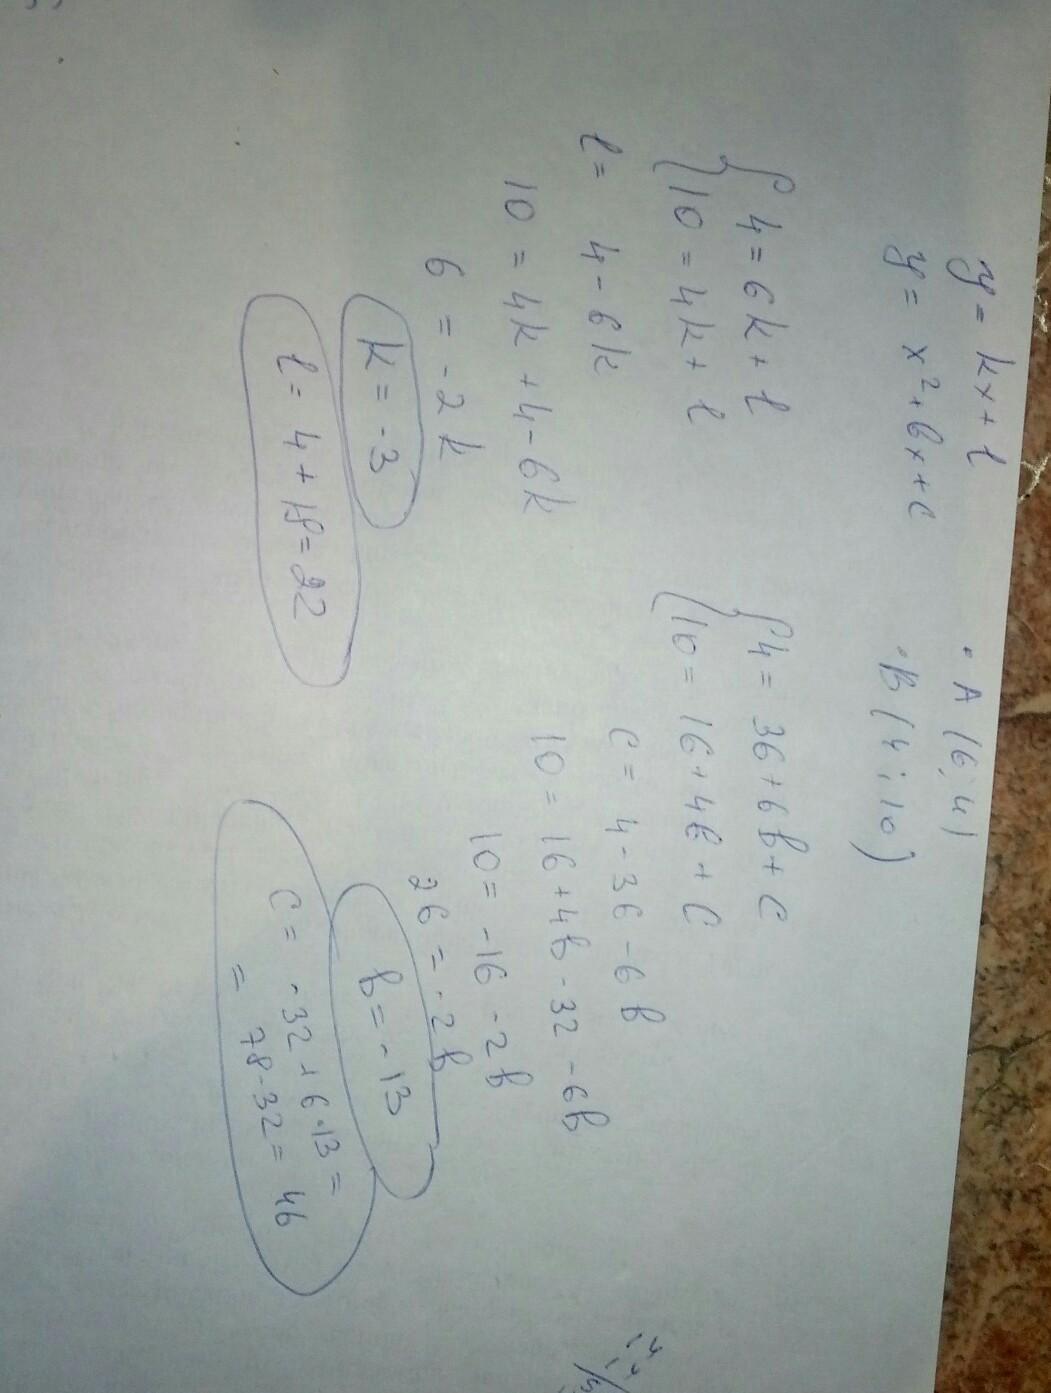 y = kx + l
• A (6; 4)
y = x² + bx + c
• B (4; 10)
{ 4 = 6k + l
{ 10 = 4k + l
l = 4 - 6k
10 = 4k + 4 - 6k
6 = -2k
k = -3
l = 4 + 18 = 22
{ 4 = 36 + 6b + c
{ 10 = 16 + 4b + c
c = 4 - 36 - 6b
10 = 16 + 4b - 32 - 6b
10 = -16 - 2b
26 = -2b
b = -13
c = -32 + 6·13 =
= 78 - 32 = 46